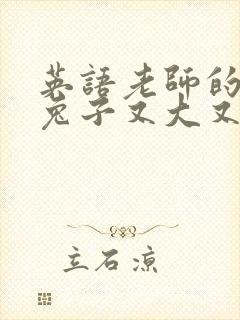 英語老師的
兔子又大又
立石涼